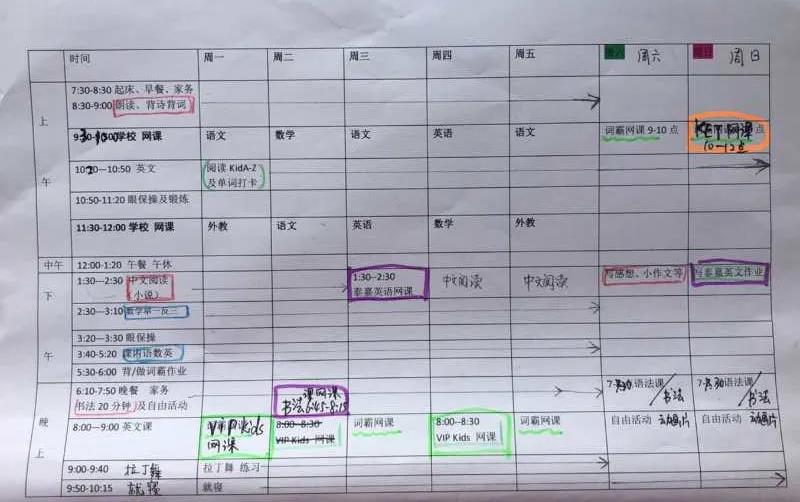 时间 周一 周二 周三 周四 周五 周六 周日
上
7:30-8:30 起床、早餐、家务
8:30-9:00 朗读、背诗背词
学校 网课 语文 数学 语文 英语 语文 词霸网课 9-10 点 KET网课 点
10-12点
10:20---10:50 英文 阅读 KidA-Z
及单词打卡
午
10:50-11:20 眼保操及锻炼
11:30-12:00 学校 网课 外教 语文 英语 数学 外教
中午 12:00-1:20 午餐 午休
下
1:30--2:30 中文阅读
（小说）
1:30--2:30
泰嘉英语网课
中文阅读 中文阅读 写感想、小作文等 写泰嘉英文作业
2:30---3:10 数学举一反三
3:20---3:30 眼保操
午 3:40-5:20 课内语数英
5:30-6:00 背/做词霸作业
6:10-7:50 晚餐 家务
书法 20 分钟及自由活动
课网课
书法6:45-8:15
语法课
书法
语法课
书法
晚
8:00---9:00 英文课
Kids
网课
8:00--8:30
VIP Kids 网课
词霸网课
8:00--8:30
VIP Kids 网课
词霸网课 自由活动 动画片 自由活动 动画片
上
9:00-9:40 拉丁舞 拉丁舞 练习
9:50-10:15 就寝 就寝